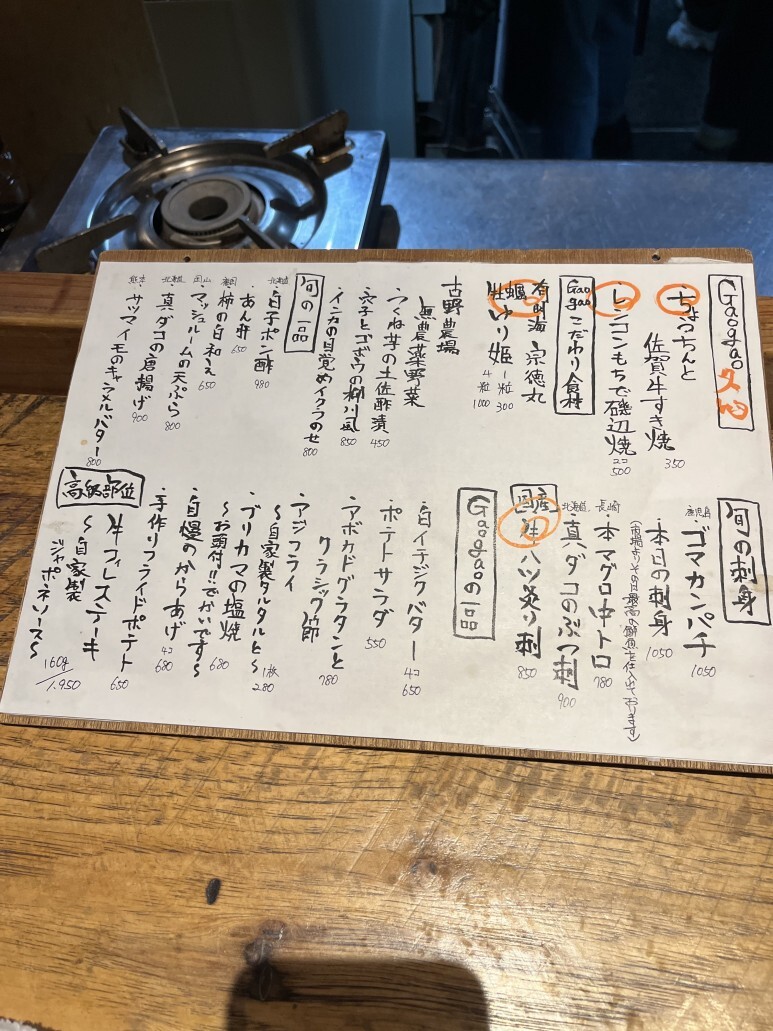 Gaogao
・ちょうちんと
佐賀牛すき焼
350
・レンコンもちで磯辺焼
2コ
500
Gaogao
こだわり食材
有明海 宗徳丸
牡蠣 ゆり姫
1粒 300
4粒 1000
古野農場
無農薬野菜
・つくね芋の土佐酢漬
450
・穴子とゴボウの柳川風
850
・インカの目覚めイクラのせ
800
旬の一品
北海道
・白子ポン酢
980
・あん肝
650
・柿の白和え
650
岡山
・マッシュルームの天ぷら
800
北海道
・真ダコの唐揚げ
900
熊本
・サツマイモのキャラメルバター
800
旬の刺身
鹿児島
・ゴマカンパチ
1050
・本日の刺身
1050
(市場よりその日最高の鮮魚を仕入れております)
長崎
・本マグロ中トロ
780
北海道
・真ダコのぶつ刺
900
国産
・牛ハツ炙り刺
850
Gaogaoの一品
・白イチジクバター
4コ
650
・ポテトサラダ
550
・アボカドグラタンと
クラシック節
780
・アジフライ
〜自家製タルタルと〜
1枚
280
・ブリカマの塩焼
〜お頭付!!でかいです〜
680
・自慢のからあげ
4コ
680
・手作りフライドポテト
650
高級部位
・牛フィレステーキ
〜自家製
ジャポネソース〜
160g/1.950